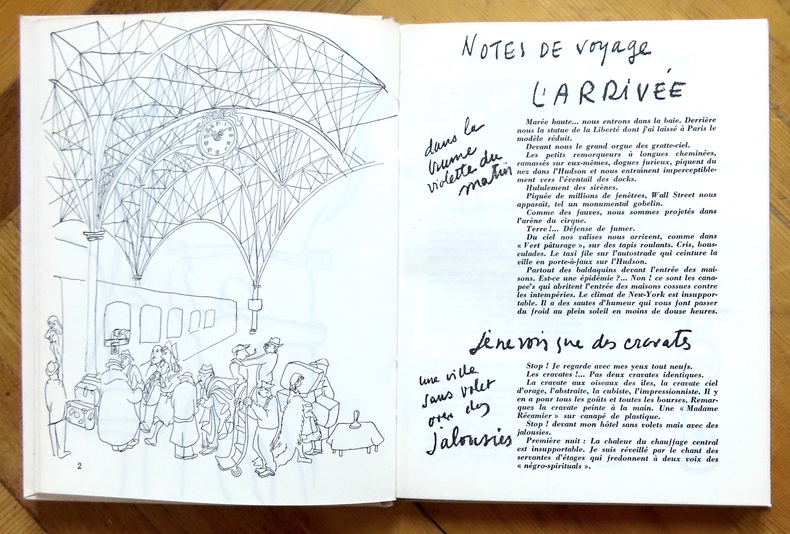 2
NOTES DE voyage
L'ARRIVÉE
dans la
brume
violette du
matin
Marée haute... nous entrons dans la baie. Derrière
nous la statue de la Liberté dont j'ai laissé à Paris le
modèle réduit.
Devant nous le grand orgue des gratte-ciel.
Les petits remorqueurs à longues cheminées,
ramassés sur eux-mêmes, dogues furieux, piquent du
nez dans l'Hudson et nous entraînent imperceptible-
ment vers l'éventail des docks.
Hululement des sirènes.
Piquée de millions de fenêtres, Wall Street nous
apparaît, tel un monumental gobelin.
Comme des fauves, nous sommes projetés dans
l'arène du cirque.
Terre!... Défense de fumer.
Du ciel nos valises nous arrivent, comme dans
« Vert pâturage », sur des tapis roulants. Cris, bous-
culades. Le taxi file sur l'autostrade qui ceinture la
ville en porte-à-faux sur l'Hudson.
Partout des baldaquins devant l'entrée des mai-
sons. Est-ce une épidémie ?... Non ! ce sont les cano-
pee's qui abritent l'entrée des maisons cossues contre
les intempéries. Le climat de New-York est insuppor-
table. Il a des sautes d'humeur qui vous font passer
du froid au plein soleil en moins de douze heures.
Je ne vois que des cravates
une ville
sans volet
avec des
jalousies
Stop ! Je regarde avec mes yeux tout neufs.
Les cravates !... Pas deux cravates identiques.
La cravate aux oiseaux des îles, la cravate ciel
d'orage, l'abstraite, la cubiste, l'impressionniste. Il y
en a pour tous les goûts et toutes les bourses. Remar-
ques la cravate peinte à la main. Une « Madame
Récamier » sur canapé de plastique.
Stop ! devant mon hôtel sans volets mais avec des
jalousies.
Première nuit : La chaleur du chauffage central
est insupportable. Je suis réveillé par le chant des
servantes d'étages qui fredonnent à deux voix des
« négro-spirituals ».